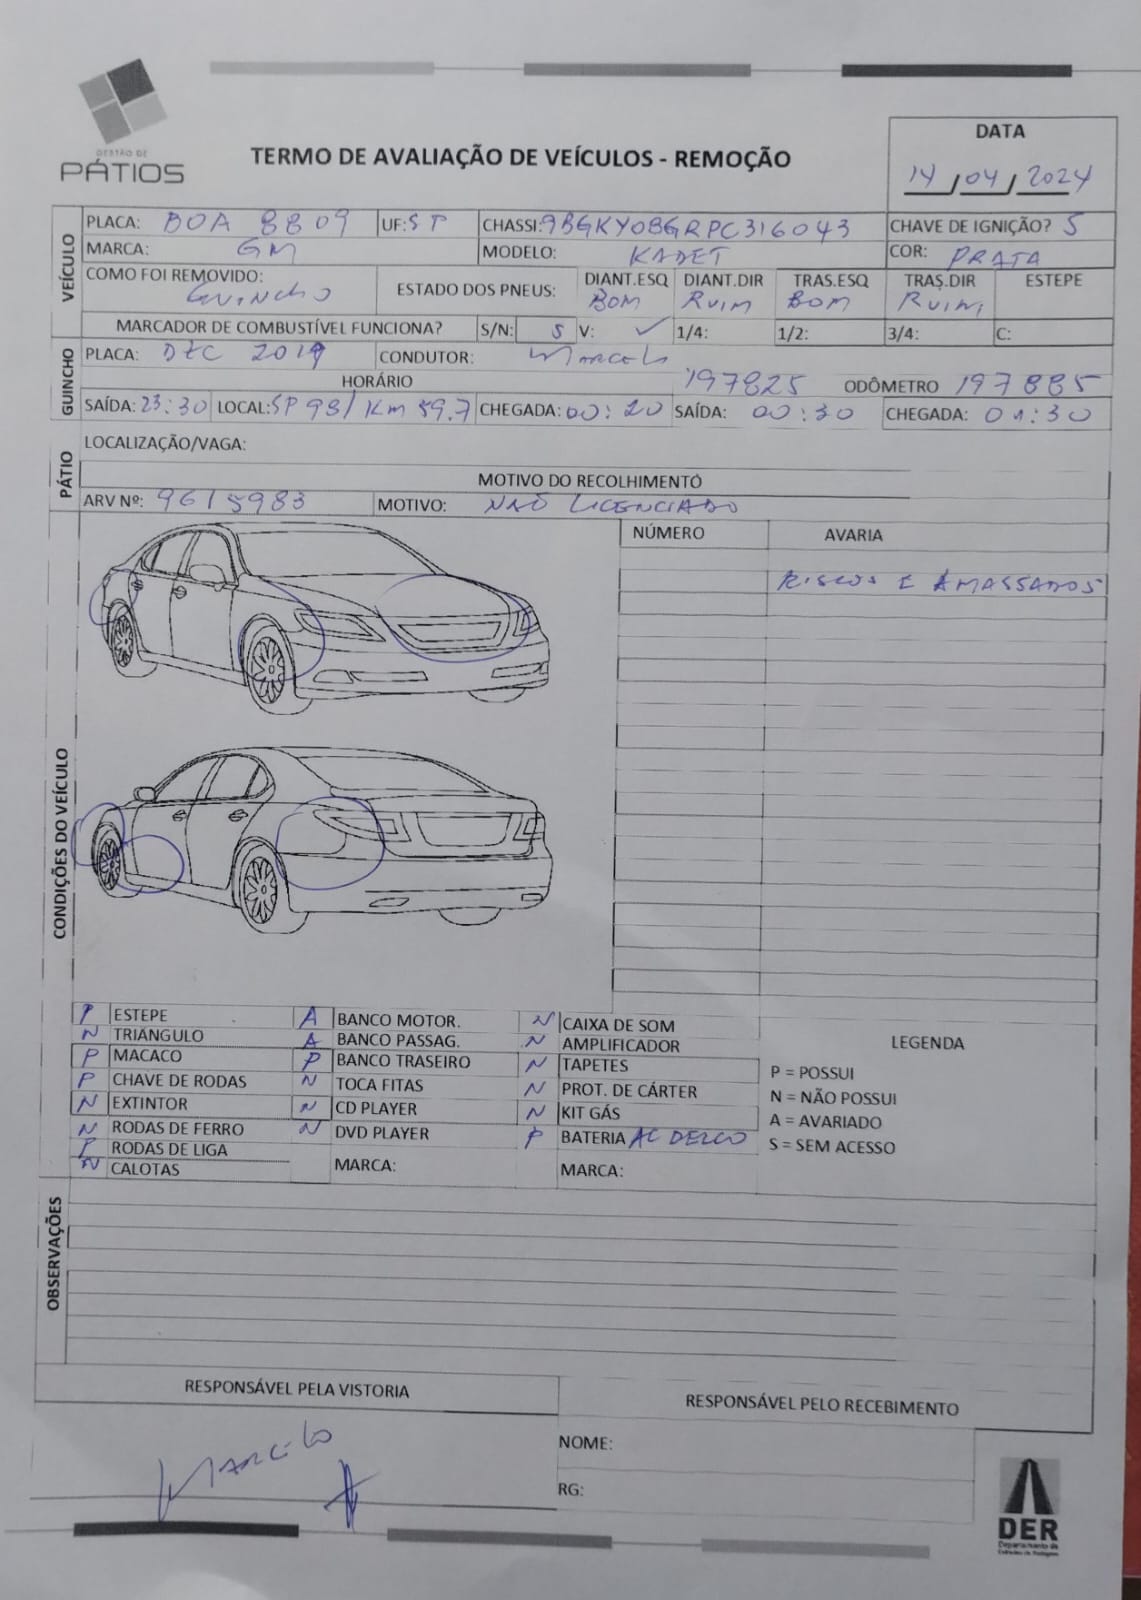 GESTÃO DE
PÁTIOS
TERMO DE AVALIAÇÃO DE VEÍCULOS - REMOÇÃO
DATA
14/04/2024
VEÍCULO
PLACA: BOA 8809 UF: SP CHASSI: 9BGKY08GRPC316043 CHAVE DE IGNIÇÃO? S
MARCA: GM MODELO: KADET COR: PRATA
COMO FOI REMOVIDO: GUINCHO ESTADO DOS PNEUS: DIANT.ESQ BOM DIANT.DIR RUIM TRAS.ESQ BOM TRAS.DIR RUIM ESTEPE
MARCADOR DE COMBUSTÍVEL FUNCIONA? S/N: S V: ✓ 1/4: 1/2: 3/4: C:
GUINCHO
PLACA: DEC 2019 CONDUTOR: Marcelo
HORÁRIO 197825 ODÔMETRO 197885
SAÍDA: 23:30 LOCAL: SP 98/ Km 59.7 CHEGADA: 00:20 SAÍDA: 00:30 CHEGADA: 01:30
PÁTIO
LOCALIZAÇÃO/VAGA:
MOTIVO DO RECOLHIMENTO
ARV Nº: 9615983 MOTIVO: NÃO LICENCIADO
CONDIÇÕES DO VEÍCULO
NÚMERO AVARIA
RISCOS E AMASSADOS
P ESTEPE A BANCO MOTOR. N CAIXA DE SOM
N TRIÂNGULO A BANCO PASSAG. N AMPLIFICADOR
P MACACO P BANCO TRASEIRO N TAPETES
P CHAVE DE RODAS N TOCA FITAS N PROT. DE CÁRTER
N EXTINTOR N CD PLAYER N KIT GÁS
N RODAS DE FERRO N DVD PLAYER P BATERIA AC DELCO
P RODAS DE LIGA
N CALOTAS MARCA: MARCA:
LEGENDA
P = POSSUI
N = NÃO POSSUI
A = AVARIADO
S = SEM ACESSO
OBSERVAÇÕES
RESPONSÁVEL PELA VISTORIA
RESPONSÁVEL PELO RECEBIMENTO
Marcelo
NOME:
RG:
DER
Departamento de
Estradas de Rodagem